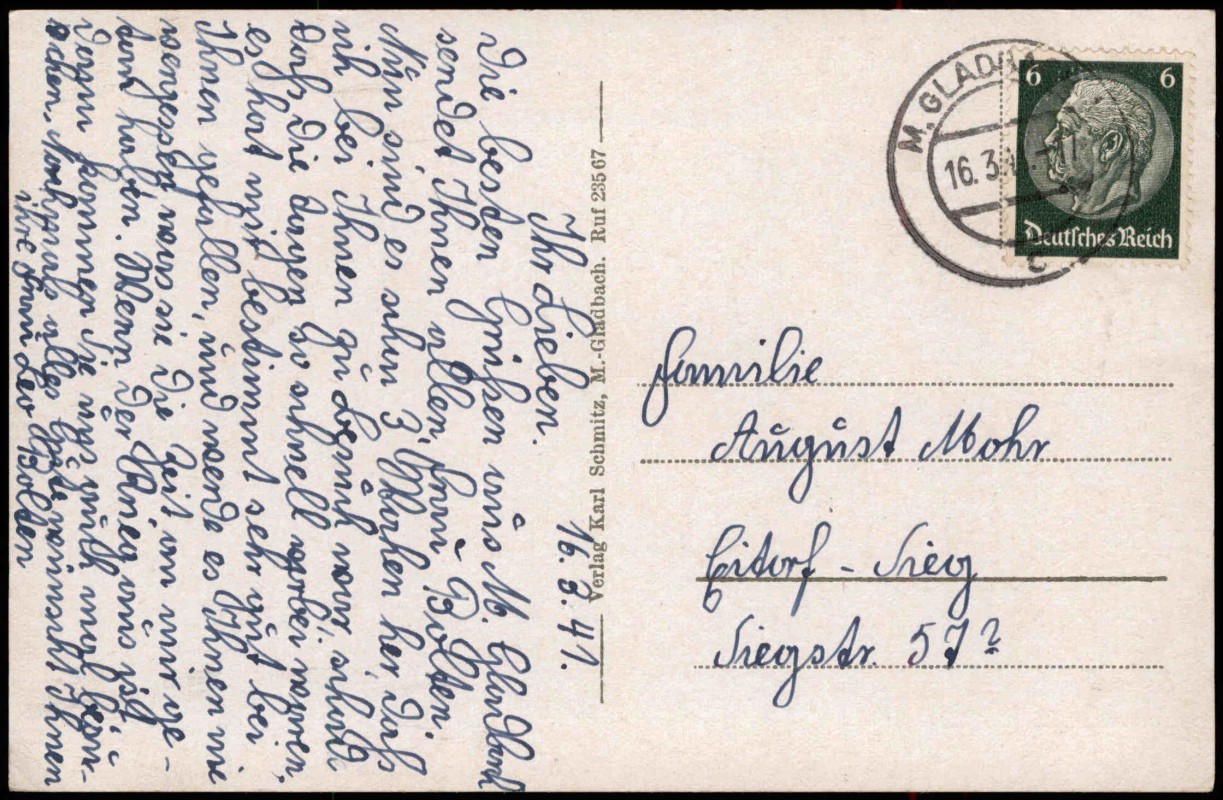 16. 3. 41.
Ihr Lieben.
Die besten Grüßen aus M. Gladbach
sendet Ihnen allen, Fam. Bolten.
Nun sind es schon 3 Wochen her, daß
ich bei Ihnen zu Besuch war, schad
daß die Tagen so schnell vorbei waren,
es hat mich bestimmt sehr gut bei
Ihnen gefallen, und werde es Ihnen nie
vergessen was sie die Zeit an mir ge-
tan haben. Wenn der Krieg aus ist,
dann kommen Sie uns auch mal besu-
chen, Nochmals alles Gute wünscht Ihnen
ihre Frau Leo Bolten
Verlag Karl Schmitz, M.-Gladbach. Ruf 23567
M. GLADBACH
16. 3.
c
6 6
Deutsches Reich
Familie
August Mohr
Eitorf - Sieg
Siegstr. 57